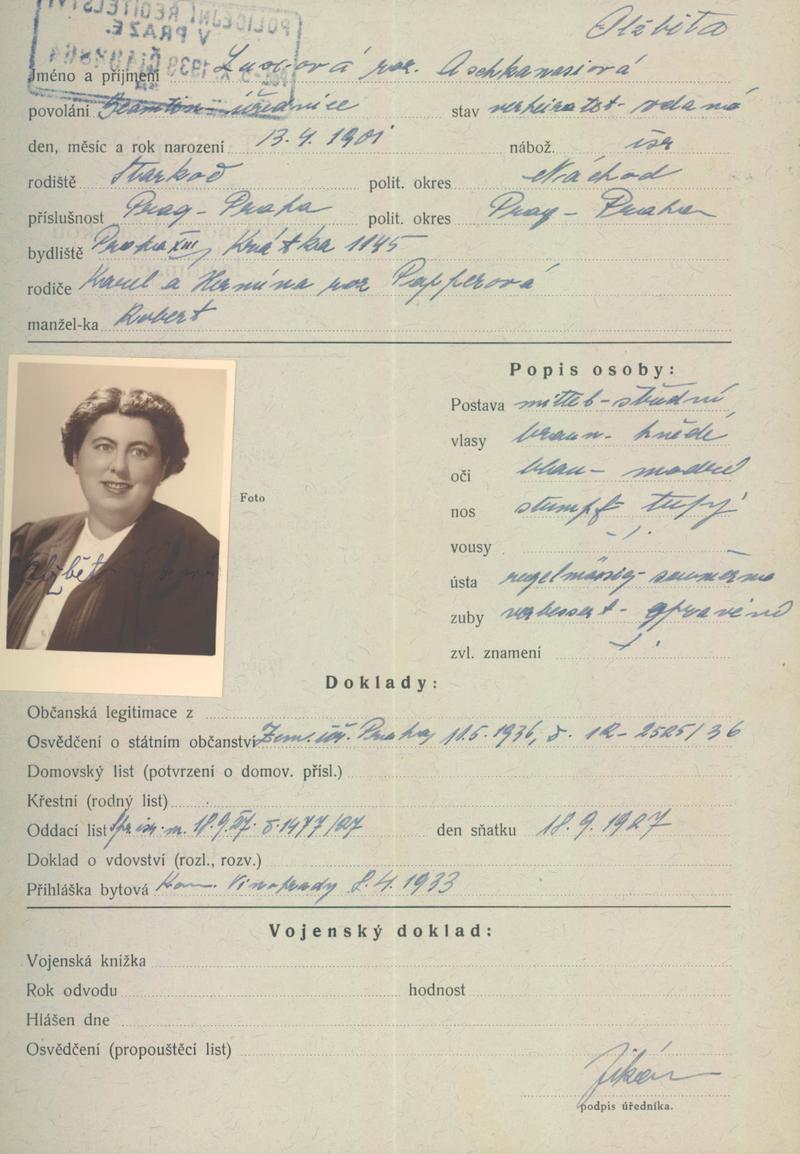 POLICEJNÍ ŘEDITELSTVÍ
V PRAZE.
Alžběta
Jméno a příjmení Luxová roz. Aschkanasiová
povolání Beamtin - úřednice stav verheiratet - vdaná
den, měsíc a rok narození 13. 4. 1901 nábož. isr
rodiště Starkoč polit. okres Náchod
příslušnost Prag - Praha polit. okres Prag - Praha
bydliště Praha XIII, Krátká 1145
rodiče Karel a Hermína roz Papperová
manžel-ka Robert
Popis osoby:
Postava mittel - střední
vlasy braun - hnědé
oči blau - modré
Foto
nos stumpf tupý
vousy - / .
Alžběta
ústa regelmässig - souměrná
zuby verbessert - opravené
zvl. znamení /.
Doklady:
Občanská legitimace z
Osvědčení o státním občanství Zem. úř. Praha, 11.5.1936, č. 12 - 2525/36
Domovský list (potvrzení o domov. přísl.)
Křestní (rodný list)
Oddací list 18.9.27. č. 1477/27 den sňatku 18. 9. 1927
Doklad o vdovství (rozl., rozv.)
Přihláška bytová Kom. Vinohrady 8. 4. 1933
Vojenský doklad:
Vojenská knížka
Rok odvodu hodnost
Hlášen dne
Osvědčení (propouštěcí list)
podpis úředníka.